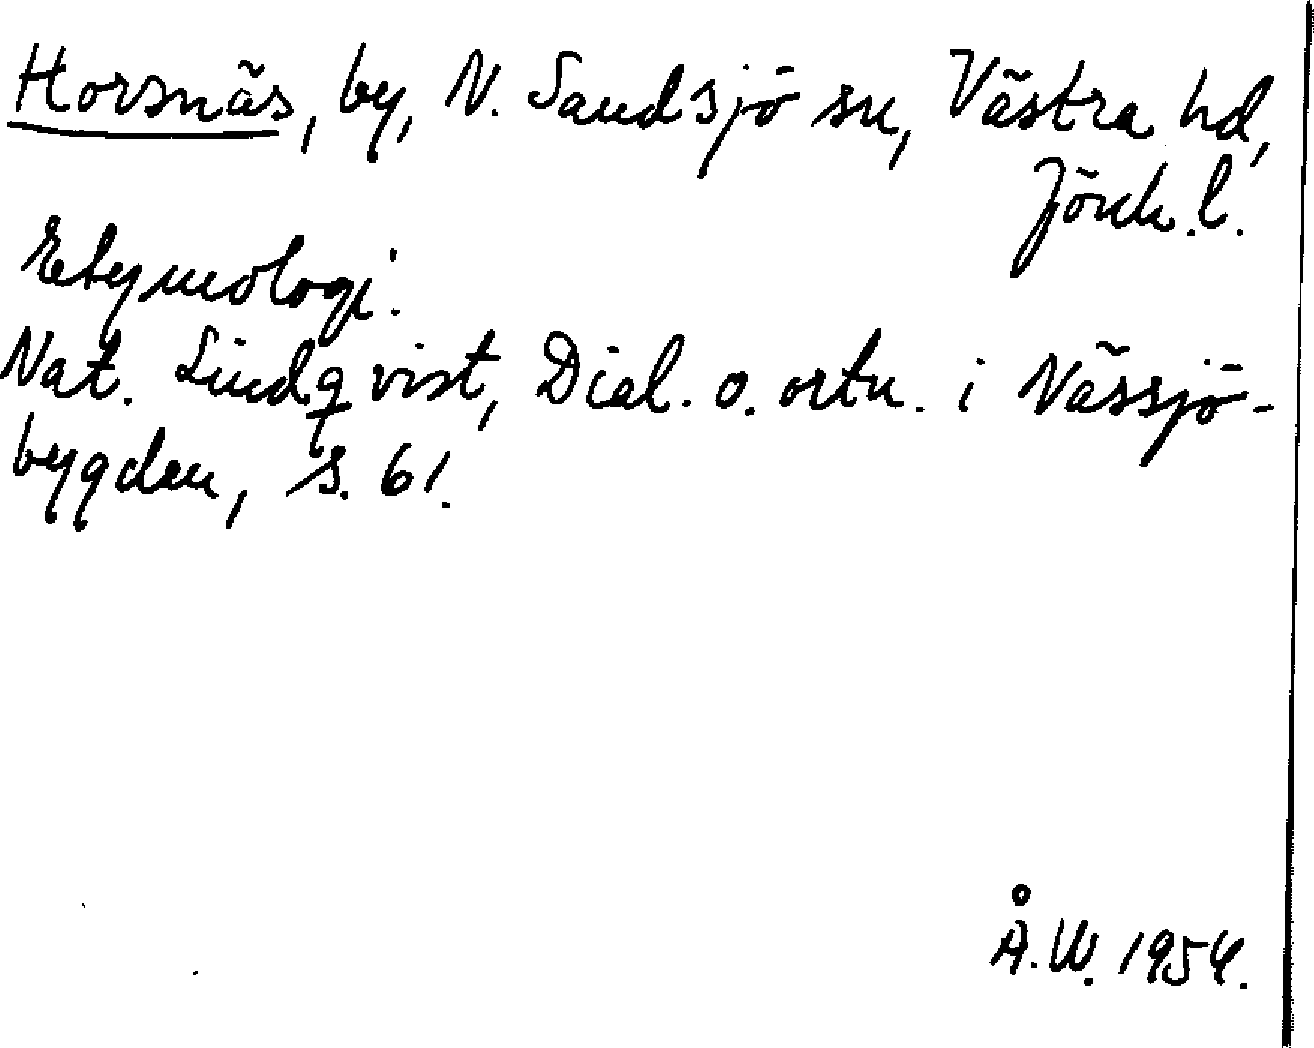 Horsnäs, by, N. Sandsjö sn, Västra hd,
Jönk.l.
Etymologi.
Nat. Lindqvist, Dial. o. ortn. i Nässjö-
bygden, s. 61.
Å.W. 1954.